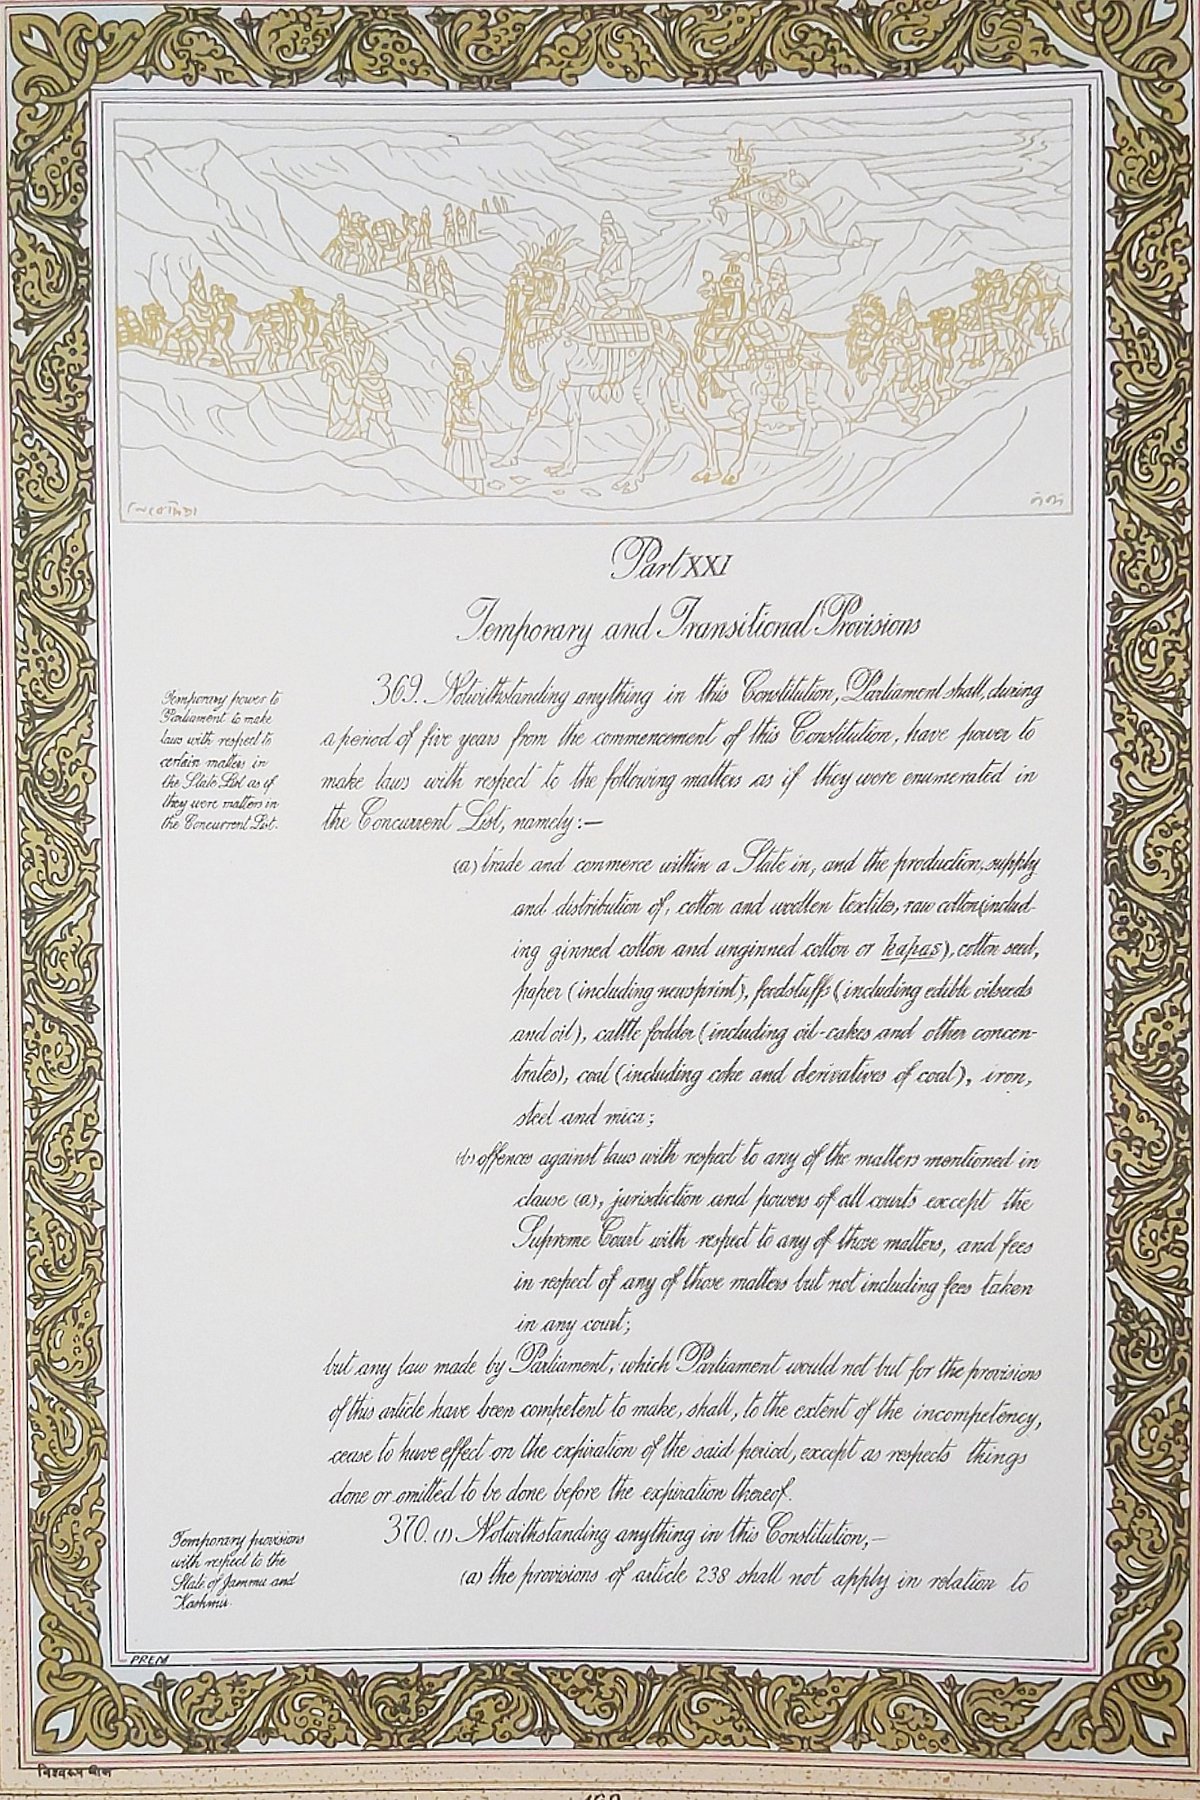 Part XXI
Temporary and Transitional Provisions
Temporary power to
Parliament to make
laws with respect to
certain matters in
the State List as if
they were matters in
the Concurrent List.
369. Notwithstanding anything in this Constitution, Parliament shall, during
a period of five years from the commencement of this Constitution, have power to
make laws with respect to the following matters as if they were enumerated in
the Concurrent List, namely:—
(a) trade and commerce within a State in, and the production, supply
and distribution of, cotton and woollen textiles, raw cotton (includ-
ing ginned cotton and unginned cotton or kapas), cotton seed,
paper (including newsprint), foodstuffs (including edible oilseeds
and oil), cattle fodder (including oil-cakes and other concen-
trates), coal (including coke and derivatives of coal), iron,
steel and mica;
(b) offences against laws with respect to any of the matters mentioned in
clause (a), jurisdiction and powers of all courts except the
Supreme Court with respect to any of those matters, and fees
in respect of any of those matters but not including fees taken
in any court;
but any law made by Parliament, which Parliament would not but for the provisions
of this article have been competent to make, shall, to the extent of the incompetency,
cease to have effect on the expiration of the said period, except as respects things
done or omitted to be done before the expiration thereof.
Temporary provisions
with respect to the
State of Jammu and
Kashmir.
370. (1) Notwithstanding anything in this Constitution,—
(a) the provisions of article 238 shall not apply in relation to
PREM